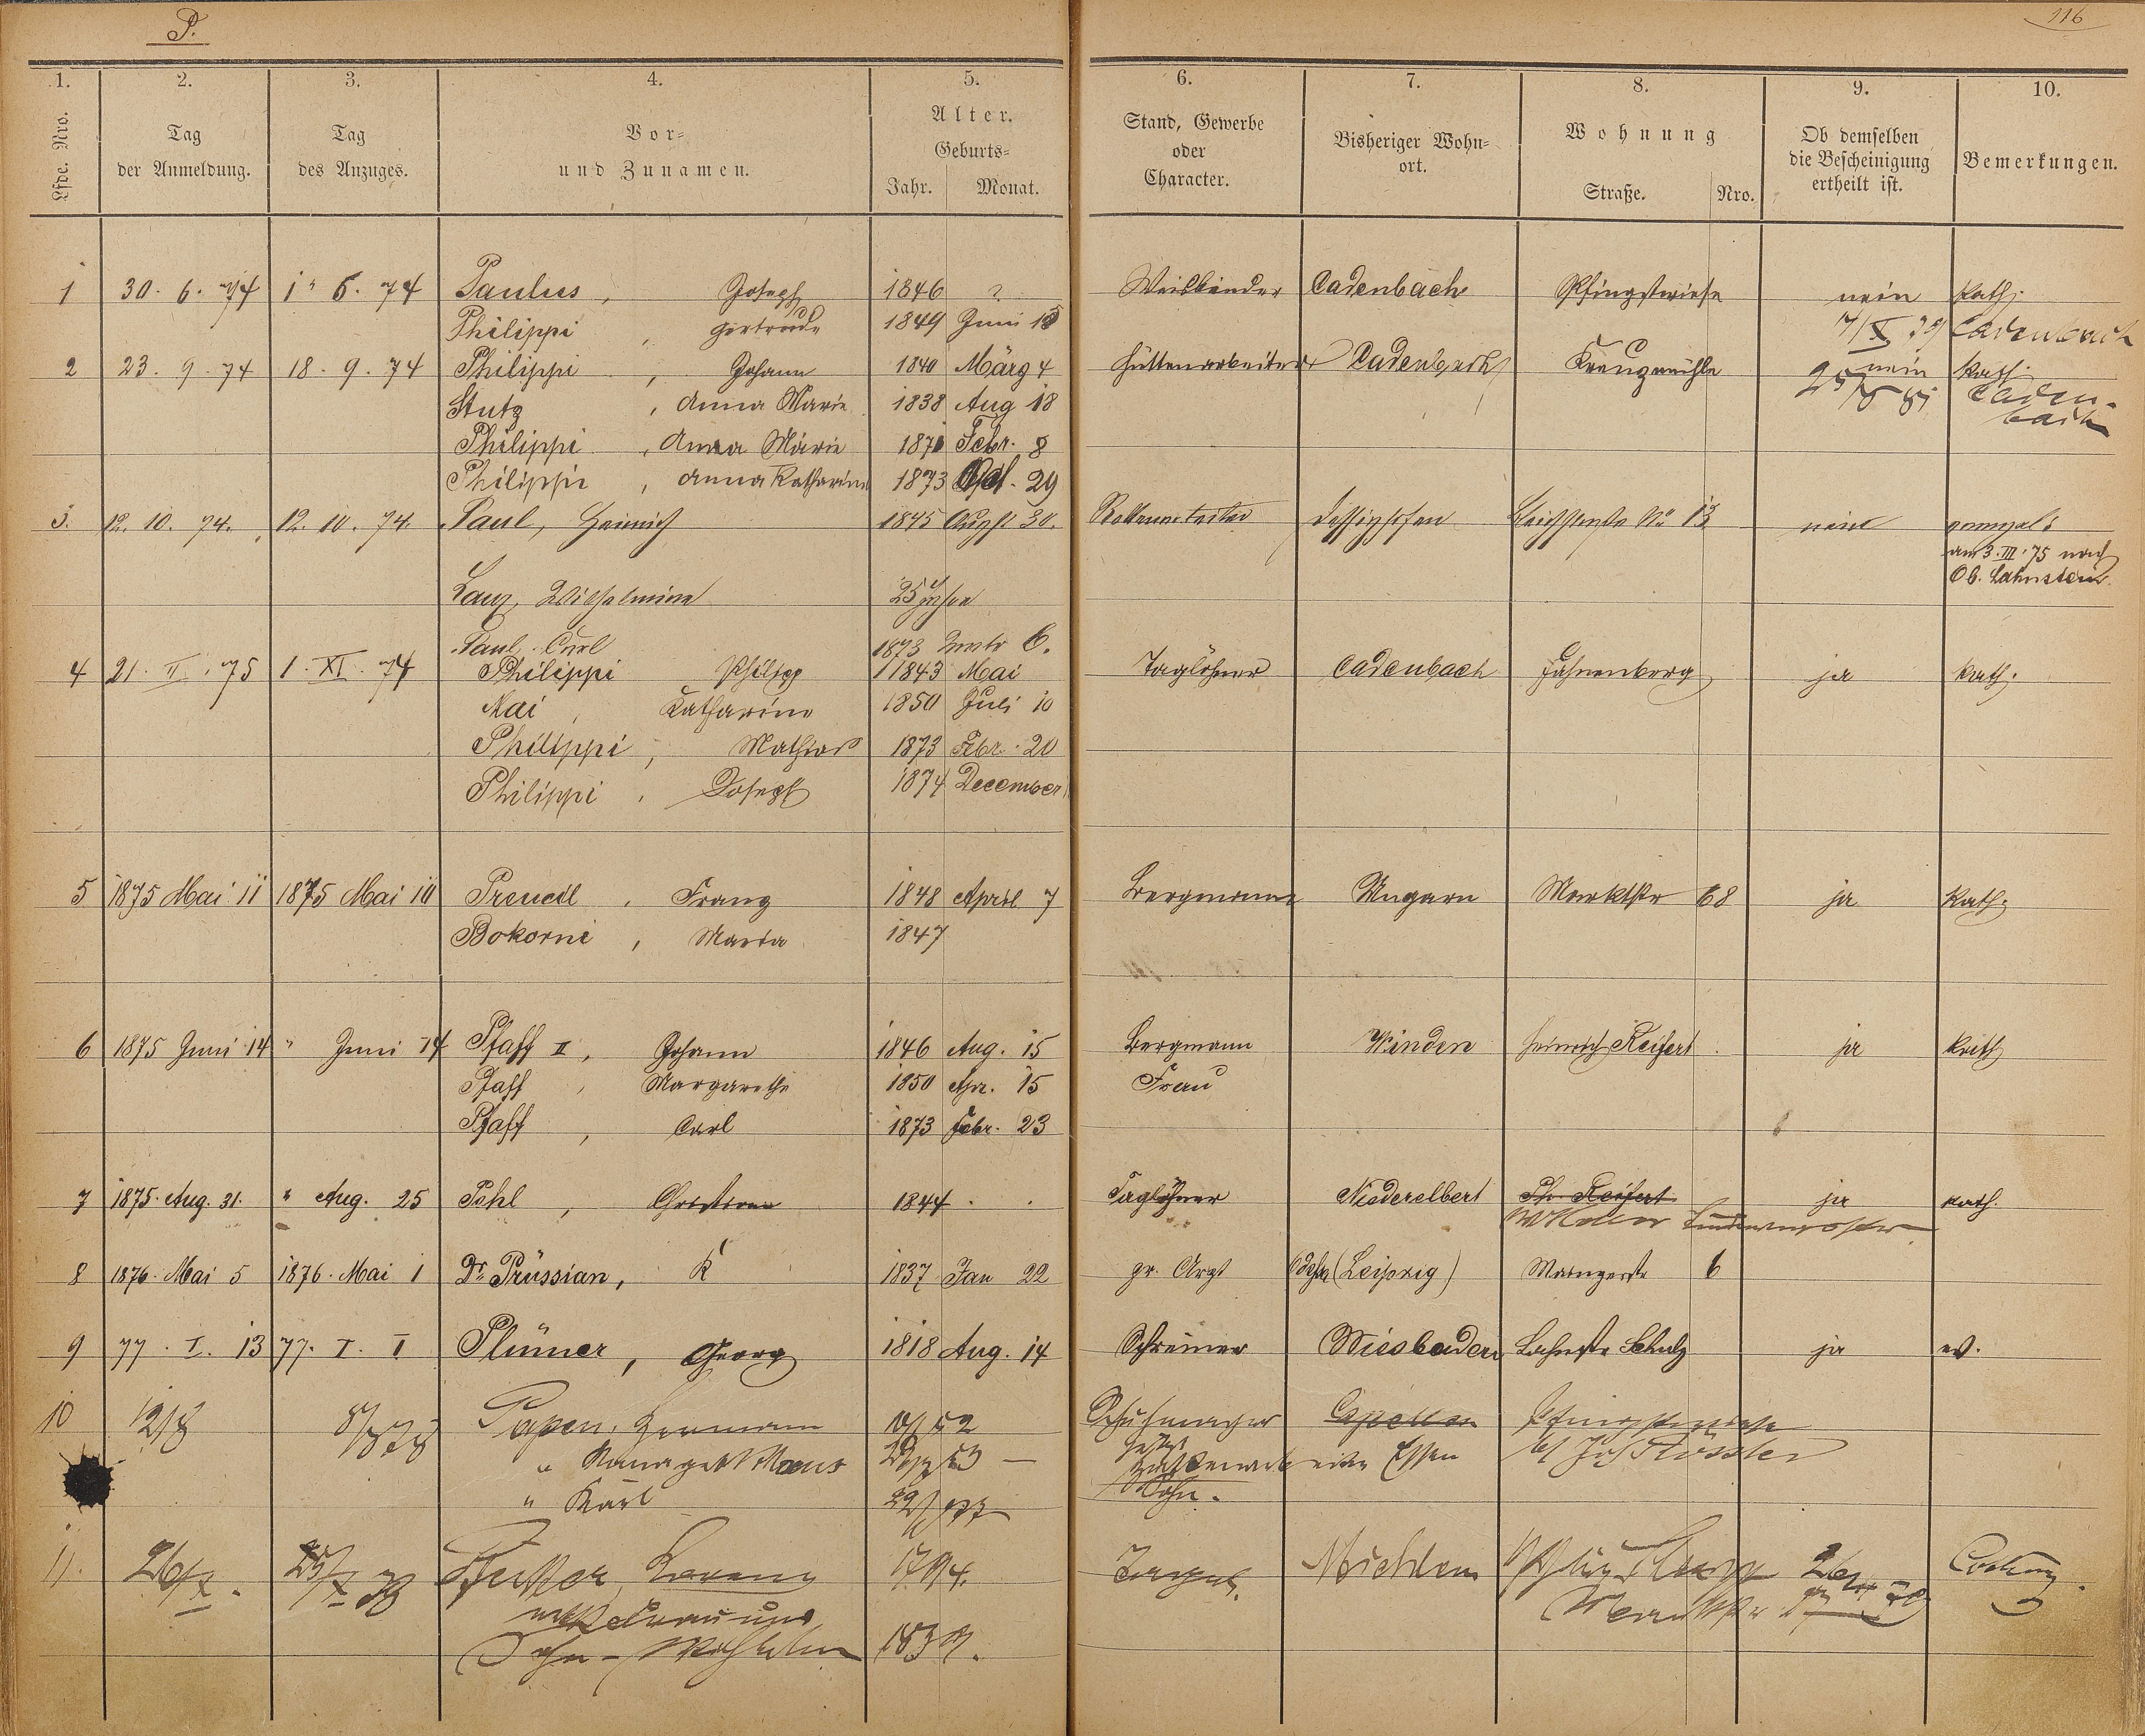 P.
116
1. 2. 3. 4. 5. 6. 7. 8. 9. 10.
Lfde. Nro. Tag der Anmeldung. Tag des Anzuges. Vor- und Zunamen. Alter. Geburts- Jahr. Monat. Stand, Gewerbe oder Character. Bisheriger Wohn- ort. Wohnung Straße. Nro. Ob demselben die Bescheinigung ertheilt ist. Bemerkungen.
1 30. 6. 74 1. 6. 74 Paulus, Joseph 1846 ? Weisbinder Cadenbach Pfingstwiese nein Kath.
Philippi, Gertrude 1849 Juni 18 Cadenbach
2 23. 9. 74 18. 9. 74 Philippi, Johann 1840 März 4 Hüttenarbeiter Cadenbach Kreuzmühle nein Kath.
Stutz, Anna Marie 1838 Aug 18 Caden-
bach
Philippi, Anna Marie 1871 Febr. 8
Philippi, Anna Katharina 1873 29
3. 12. 10. 74. 12. 10. 74. Paul, Heinrich 1845 30. Dessighofen No 13 nein
am 3. III. 75 nach
Ob. Lahnstein
Wilhelmine 25 Jahre
Paul, Carl 1873 6.
4 21. II. 75 1. XI. 74 Philippi Philipp 1843 Mai Taglöhner Cadenbach Fahnenberg ja Kath.
Mai, Katharina 1850 Juli 10
Philippi, Mathias 1873 Febr. 20
Philippi, Joseph 1874 December
5 1875 Mai 11 1875 Mai 10 Preucil, Franz 1848 April 7 Bergmann Ungarn Marktstr 68 ja Kath.
Bokorni, Maria 1847
6 1875 Juni 14 " Juni 14 Pfaff II, Johann 1846 Aug. 15 Bergmann Winden Heinrich Reifert ja Kath
Pfaff, Margarethe 1850 Apr. 15 Frau
Pfaff, Carl 1873 Febr. 23
7 1875. Aug. 31. " Aug. 25 Pohl, Christian 1844 Taglöhner Niederelbert Ph. Reifert ja Kath.
8 1876. Mai 5 1876. Mai 1 Dr. Prüssian, K 1837 Jan 22 pr. Arzt (Leipzig) Mainzerstr 6
9 77. I. 13 77. I. I Plümer, Georg 1818 Aug. 14 Schreiner Wiesbaden Lahnstr Schulz ja ev.
10 12/8 8/8 78 Papen, Hermann 52 Schuhmacher Capellen Pfingstwiese
" 53 — Essen
" Karl 22/ 77 Sohn.
11. 26/X. 25/X 78 Lorenz Miehlen
Frau und
Sohn - Wilhelm